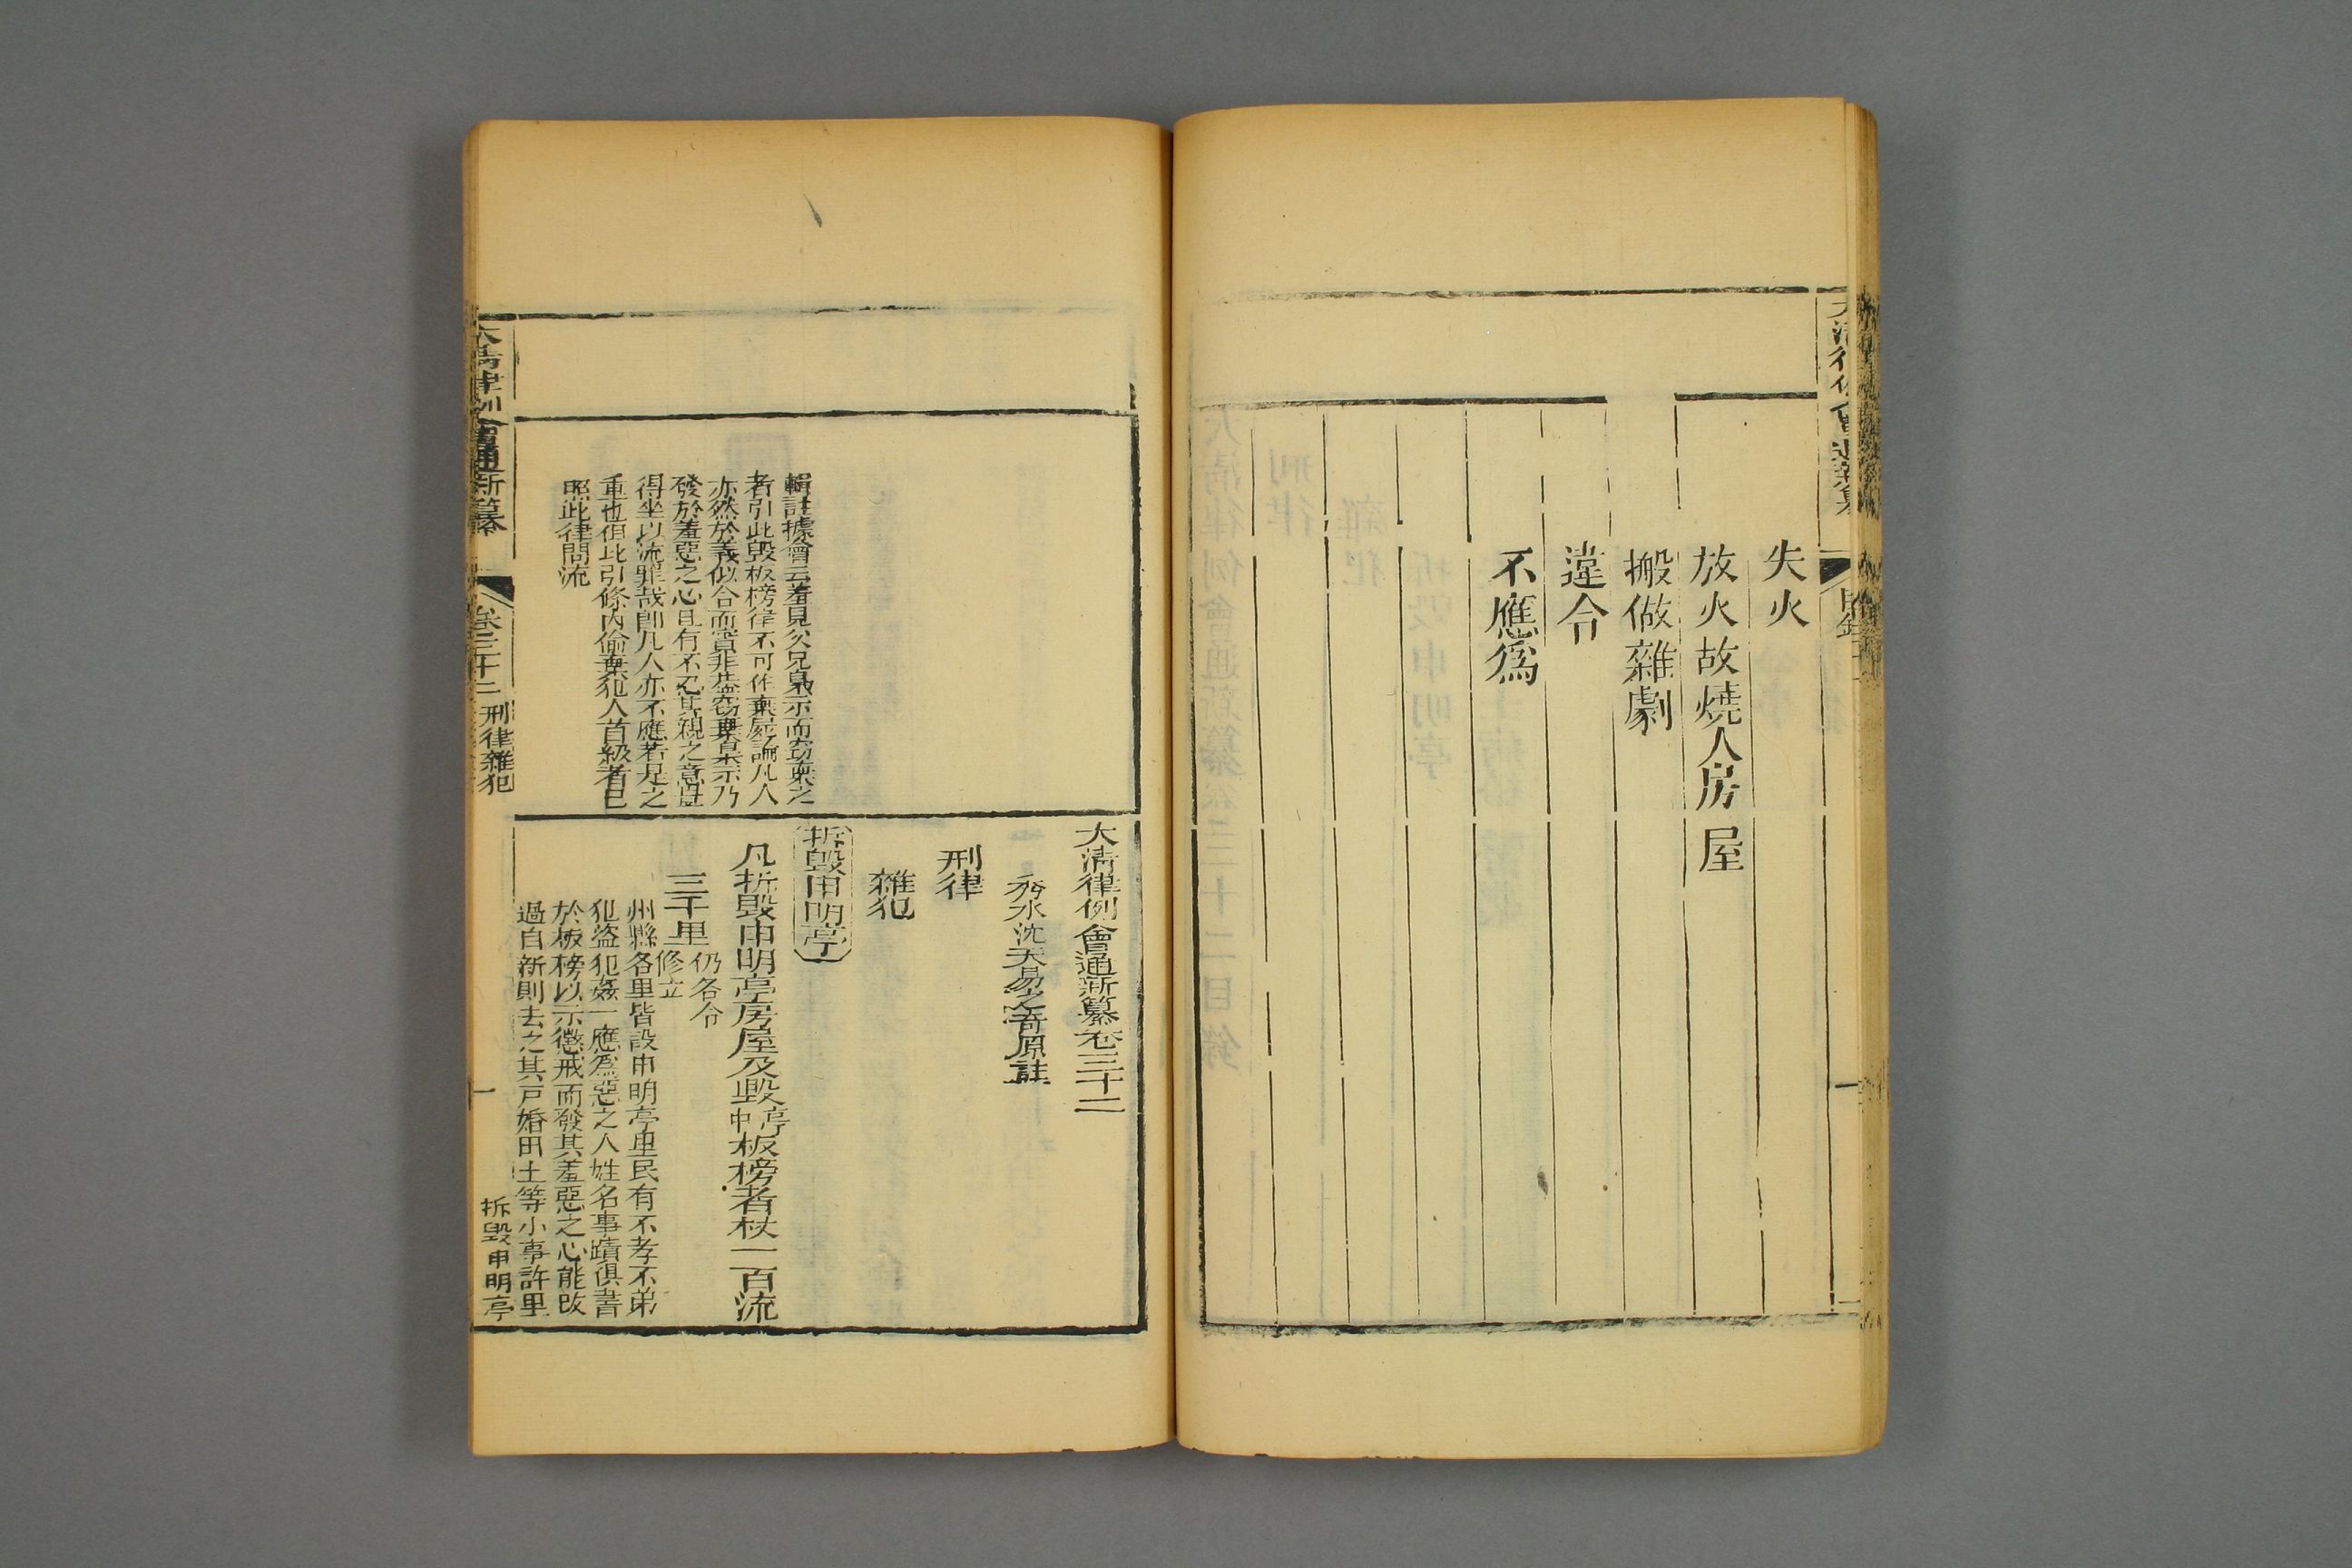 大清律例會通新纂
目錄
一
失火
放火故燒人房屋
搬做雜劇
違令
不應爲
輯註據會云羞見父兄梟示而竊棄之
者引此毀板榜律不可作棄屍論凡人
亦然於義似合而實非蓋竊棄梟示乃
發於羞惡之心且有不忍其親之意豈
得坐以流罪哉卽凡人亦不應若是之
重也但比引條內偷棄犯人首級者已
照此律問流
大清律例會通新纂卷三十二
秀水沈天易之奇原註
刑律
雜犯
拆毀申明亭
凡拆毀申明亭房屋及毀亭中板榜者杖一百流
三千里仍各令修立
州縣各里皆設申明亭里民有不孝不弟
犯盜犯姦一應爲惡之人姓名事蹟俱書
於板榜以示懲戒而發其羞惡之心能改
過自新則去之其戶婚田土等小事許里
大清律例會通新纂
卷三十二 刑律雜犯
一
拆毀申明亭